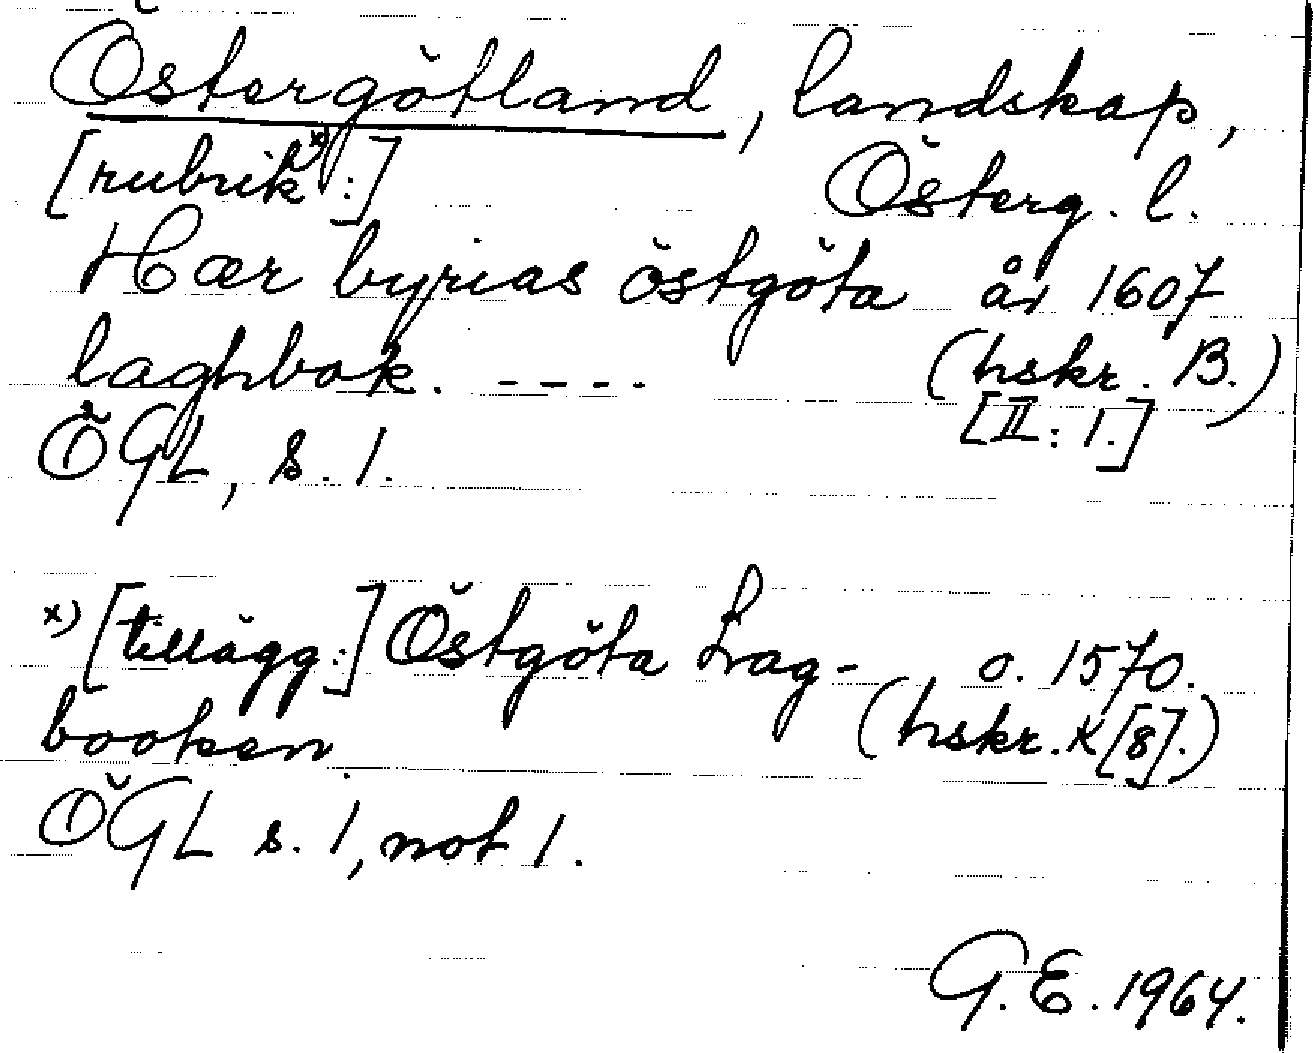 Östergötland, landskap,
[rubrik x):] Österg. l.
Hær byrias östgöta år 1607
laghbok. ---- (hskr. B.)
[II: 1.]
ÖGL, s. 1.
x) [tillägg:] Östgöta Lag- o. 1570.
booken. (hskr. K [8].)
ÖGL s. 1, not 1.
G.E. 1964.